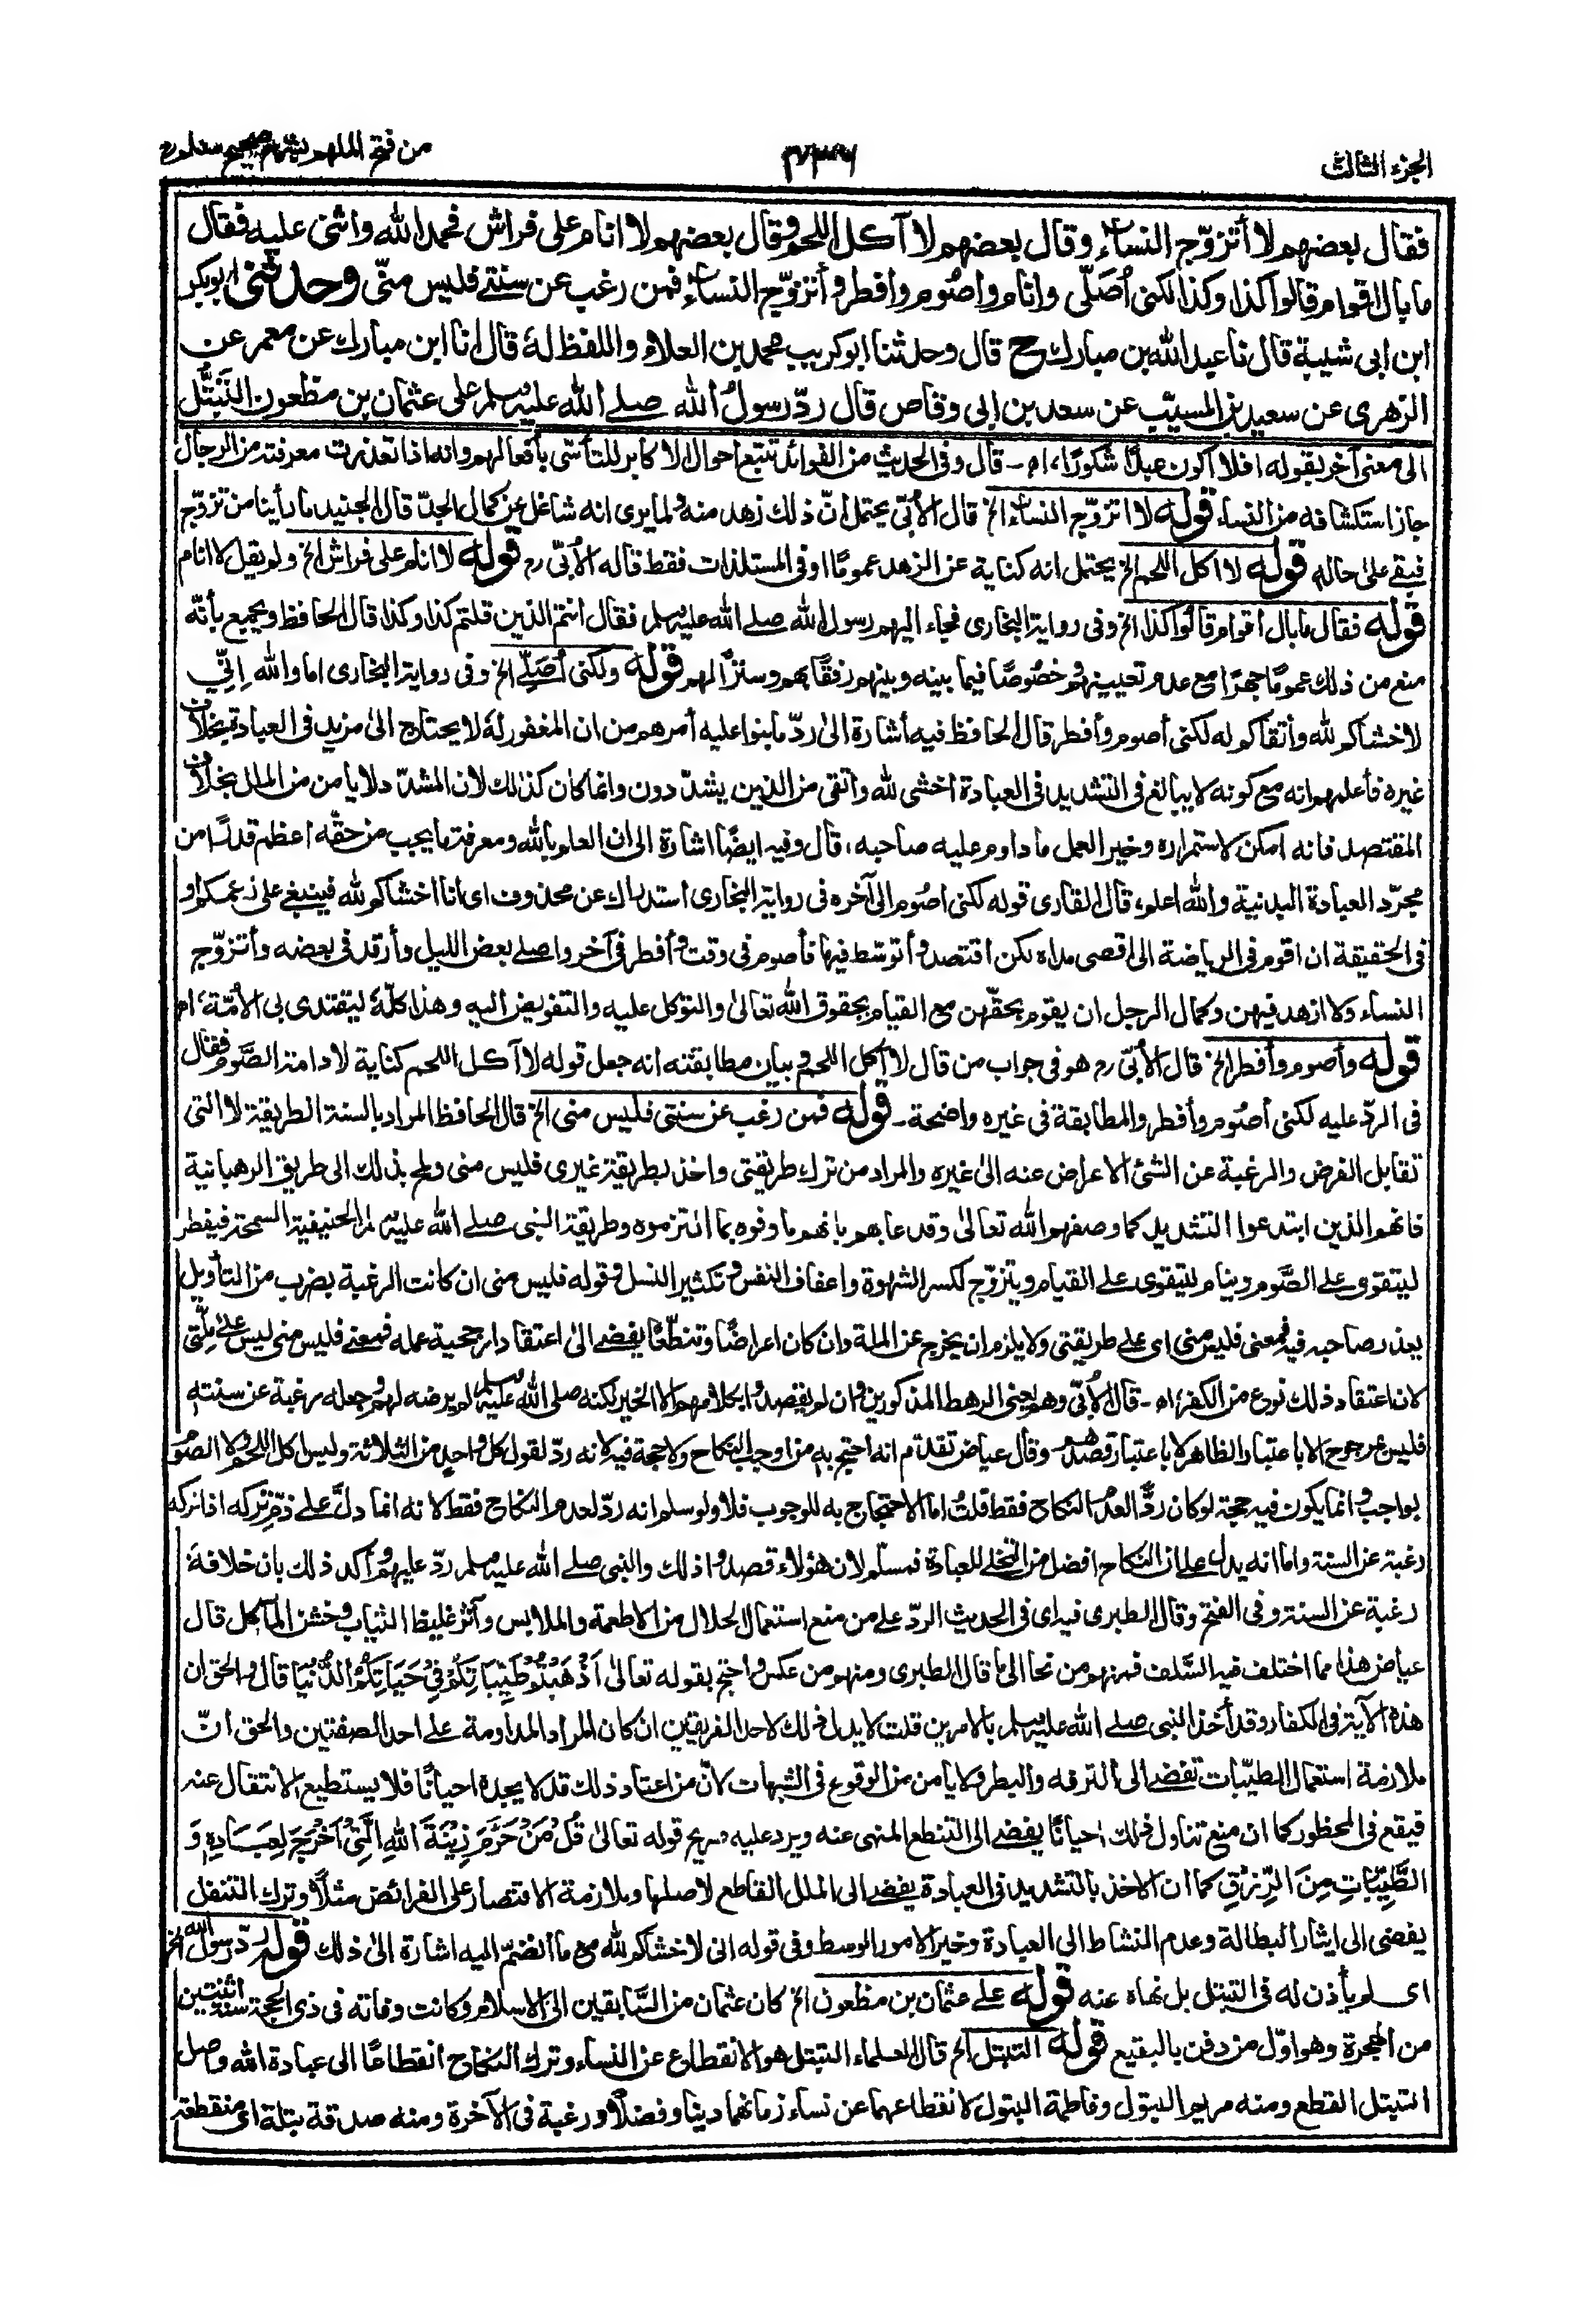 الجزء الثالث
من فتح الملهم بشرح صحيح مسلم
فقال بعضهم لا أتزوّج النساء وقال بعضهم لا آكل اللحم وقال بعضهم لا انام على فراش فحمد الله واثنى عليه فقال
ما بال اقوام قالوا كذا وكذا لكنى أصَلّى وانام واصُوم وأفطر وأتزوّج النساء فمن رغب عن سنتى فليس منّى وحدثنى ابوبكر
ابن ابى شيبة قال نا عبد الله بن مبارك ح قال وحدثنا ابو كريب محمد بن العلاء واللفظ لهٗ قال انا ابن مبارك عن معمر عن
الزهرى عن سعيد بن المسيّب عن سعد بن ابى وقاص قال ردّ رسولُ الله صلے الله عليہ وسلم على عثمان بن مظعون التَبَتُّل
الى معنى آخر بقوله افلا اكون عبدًا شكورًا، اھ - قال وفى الحديث من الفوائد تتبع احوال الاكابر للتأسّى بأفعالهم وانه اذا تعذرت معرفته من الرجال
جاز استكشافه من النساء قولہ لا اتزوّج النساء الخ قال الأبّى يحتمل انّ ذلك زهد منه ولما يرى انه شاغل عن كمال الجدّ قال الجنيد ما رأينا من تزوّج
فبقے علىٰ حاله قولہ لا اكل اللحم الخ يحتمل انه كناية عن الزهد عمومًا او فى المستلذات فقط قاله الأبّى رح قولہ لا انام على فراش الخ ولم يقل لا انام
قولہ فقال ما بال أقوام قالوا كذا الخ وفى رواية البخارى فجاء اليهم رسول الله صلے الله عليہ وسلم فقال انتم الذين قلتم كذا وكذا قال الحافظ ويجمع بأنّه
منع من ذلك عمومًا جهرًا مع عدم تعيينهم وخصُوصًا فيما بينه وبينهم رفقًا بهم وسترًا لهم قولہ ولكنى أصَلّے الخ وفى رواية البخارى اما والله اِنّى
لاخشاكم لله وأتقاكم له لكنى أصوم وأفطر قال الحافظ فيه أشارة الىٰ ردّ ما بنوا عليه أمرهم من ان المغفور لهٗ لا يحتاج الىٰ مزيد فى العبادة بخلاف
غيره فأعلمهم انه مع كونه لا يبالغ فى التشديد فى العبادة اخشى لله وأتقى من الذين يشدّدون وانما كان كذلك لان المشدّد لا يامن من الملل بخلاف
المقتصد فانه امكن لاستمراره وخير العمل ما داوم عليه صاحبه، قال وفيه ايضًا اشارة الى ان العلم بالله ومعرفة ما يجب من حقّه اعظم قدرًا من
مجرّد العبادة البدنية والله اعلم، قال القارى قوله لكنى اصُوم الى آخره فى رواية البخارى استدراك عن محذوف اى انا اخشاكم لله فينبغے على زعمكم او
فى الحقيقة ان اقوم فى الرياضة الى اقصى مداه لكن اقتصد وأتوسّط فيها فأصوم فى وقت وأفطر فى آخر واصلے بعض الليل وأرقد فى بعضه وأتزوّج
النساء ولا ازهد فيهن وكمال الرجل ان يقوم بحقّهن مع القيام بحقوق الله تعالىٰ والتوكل عليه والتفويض اليه وهذا كلّهٗ ليقتدى بى الأمّة، اھ
قولہ وأصوم وأفطر الخ قال الأبّى رح هو فى جواب من قال لا أكل اللحم وبيان مطابقته انه جعل قوله لا آكل اللحم كناية لادامة الصَّوم فقال
فى الردّ عليه لكنى أصُوم وأفطر والمطابقة فى غيره واضحة - قولہ فمن رغب عن سنتى فليس منى الخ قال الحافظ المراد بالسنة الطريقة لا التى
تقابل الفرض والرغبة عن الشئ الاعراض عنه الىٰ غيره والمراد من ترك طريقتى واخذ بطريقة غيرى فليس منى ولمح بذلك الى طريق الرهبانية
فانهم الذين ابتدعوا التشديد كما وصفهم الله تعالىٰ وقد عابهم بانهم ما وفوه بما التزموه وطريقة النبى صلے الله عليہ وسلم الحنيفية السمحة فيفطر
ليتقوى على الصَّوم وينام ليتقوى علے القيام ويتزوّج لكسر الشهوة واعفاف النفس وتكثير النسل وقوله فليس منى ان كانت الرغبة بضرب من التأويل
يعذر صاحبه فيه فمعنى فليس منى اى علے طريقتى ولا يلزم ان يخرج عن الملة وان كان اعراضًا وتنطّعًا يفضے الىٰ اعتقاد ارجحية عمله فمعنے فليس منى ليس علے ملّتى
لان اعتقاد ذلك نوع من الكفر، اھ - قال الأبّى وهم يعنى الرهط المذكورين وان لم يقصدوا بكلامهم الا الخير لكنه صلى الله عليہ وسلم لم يرضه لهم وجعله رغبة عن سنته
فليس بمرجوح الا باعتبار الظاهر لا باعتبار قصدهم وقال عياض تقدم انه احتج به من اوجب النكاح ولا حجة فيه لانه ردّ لقول كل واحدٍ من الثلاثة وليس اكل اللحم ولا الصوم
بواجب وانما يكون فيه حجة لو كان ردًّا لعدم النكاح فقط قلتُ اما الاحتجاج به للوجوب فلا ولو سلم انه ردّ لعدم النكاح فقط لانه انما دلّ علے ذمّ من تركه اذا تركه
رغبة عن السنة واما انه يدل على ان النكاح افضل من التخلے للعبادة فمسلم لان هؤلاء قصدوا ذلك والنبى صلے الله عليہ وسلم ردّ عليهم وأكد ذلك بان خلافهٗ
رغبة عن السنة وفى الفتح وقال الطبرى فيه اى فى الحديث الردّ على من منع استعمال الحلال من الاطعمة والملابس وآثر غليظ الثياب وخشن المأكل قال
عياض هذا مما اختلف فيه السَّلف فمنهم من نحا الى ما قال الطبرى ومنهم من عكس واحتج بقوله تعالىٰ اَذْهَبْتُمْ طَيِّبَاتِكُمْ فِيْ حَيَاتِكُمُ الدُّنْيَا قال والحق ان
هذه الآية فى الكفار وقد أخذ النبى صلے الله عليہ وسلم بالامرين قلت لا يدل ذلك لاحد الفريقين ان كان المراد المداومة علے احد الصفتين والحق انّ
ملازمة استعمال الطيّبات تفضے الى الترفه والبطر ولا يامن من الوقوع فى الشبهات لانّ من اعتاد ذلك قد لا يجده احيانًا فلا يستطيع الانتقال عنه
فيقع فى المحظور كما ان منع تناول ذلك احيانًا يفضے الى التنطع المنهى عنه ويرد عليه صريح قوله تعالىٰ قُلْ مَنْ حَرَّمَ زِيْنَةَ اللهِ الَّتِيْ اَخْرَجَ لِعِبَادِهٖ وَ
الطَّيِّبَاتِ مِنَ الرِّزْقِ كما ان الاخذ بالتشديد فى العبادة يفضے الى الملل القاطع لاصلها وملازمة الاقتصار على الفرائض مثلًا وترك التنفل
يفضى الى ايثار البطالة وعدم النشاط الى العبادة وخير الامور الوسط وفى قوله انى لاخشاكم لله مع ما انضمّ اليه اشارة الىٰ ذلك قولہ ردّ رسول الله الخ
اى لم يأذن له فى التبتل بل نهاه عنه قولہ علے عثمان بن مظعون الخ كان عثمان من السَّابقين الى الاسلام وكانت وفاته فى ذى الحجة سنة اثنتين
من الهجرة وهو اوّل من دفن بالبقيع قولہ التبتل الخ قال العلماء التبتل هو الانقطاع عن النساء وترك النكاح انقطاعًا الى عبادة الله واصل
التبتل القطع ومنه مريم البتول وفاطمة البتول لانقطاعهما عن نساء زمانهما دينا وفضلًا ورغبة فى الآخرة ومنه صدقة بتلة اى منقطعة